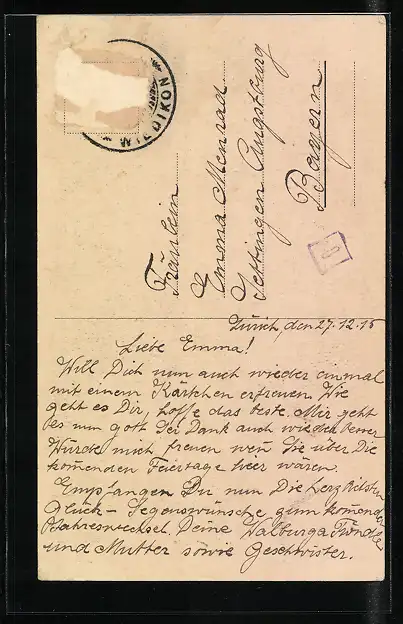 WIEDIKON
Fräulein
Emma Menrad
Jettingen Augsburg
Bayern
Zürich, den 27.12.15
Liebe Emma!
Will Dich nun auch wieder einmal
mit einem Kärtchen erfreuen Wie
geht es Dir, hoffe das beste. Mir geht
es nun gott sei Dank auch wieder besser
Würde mich freuen wen Sie über Die
komenden Feiertage hier wären.
Empfangen Du nun Die herzlichsten
Glück- Segenswünsche zum komenden
Jahreswechsel. Deine Walburga
und Mutter sowie Geschwister.